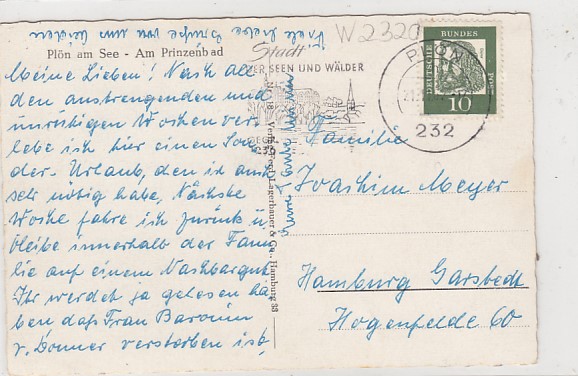 Plön am See - Am Prinzenbad
Meine Lieben! Nach all
den anstrengenden und
unruhigen Wochen ver-
lebe ich hier einen Son-
der-Urlaub, den ich auch
sehr nötig habe. Nächste
Woche fahre ich zurück u.
bleibe innerhalb der Fami-
lie auf einem Nachbargut
Ihr werdet ja gelesen ha-
ben daß Frau Baronin
v. Donner verstorben ist,
Viele liebe Grüße von uns beiden
W2320
Stadt
DER SEEN UND WÄLDER
PLÖN
232
DEUTSCHE BUNDESPOST
10
Verlag Ferd. Lagerbauer & Co., Hamburg 33
Familie
Joachim Meyer
Hamburg Garstedt
Hogenfelde 60